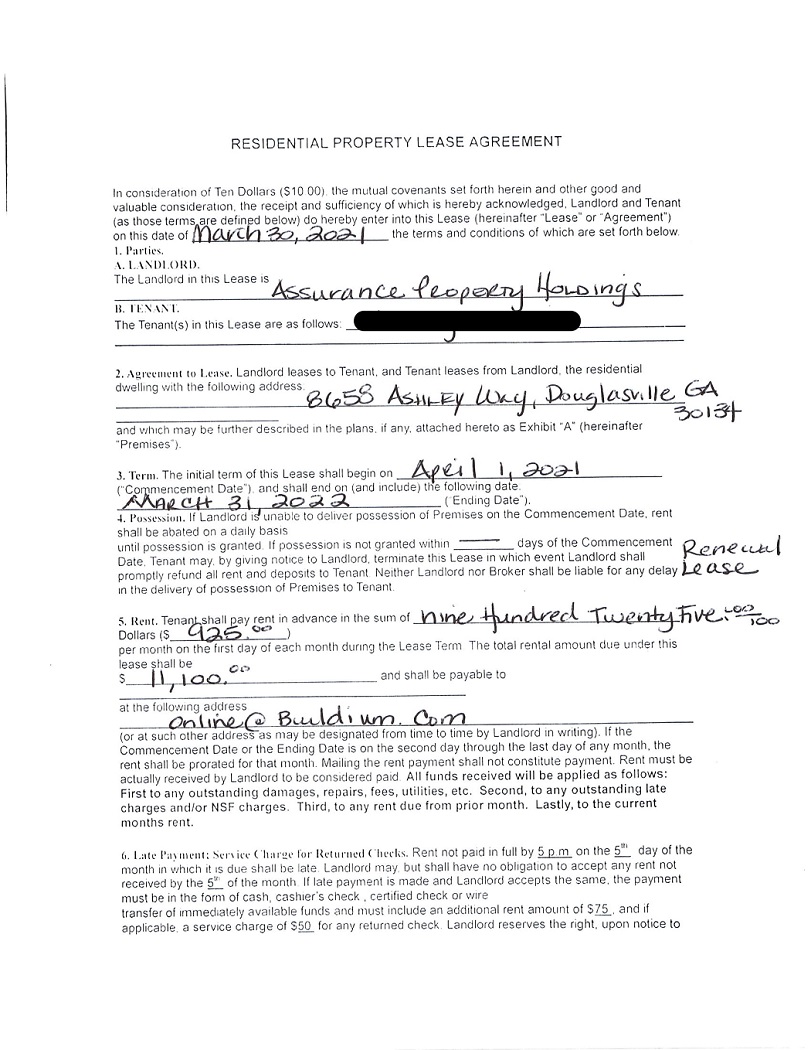 RESIDENTIAL PROPERTY LEASE AGREEMENT
In consideration of Ten Dollars ($10.00), the mutual covenants set forth herein and other good and
valuable consideration, the receipt and sufficiency of which is hereby acknowledged, Landlord and Tenant
(as those terms are defined below) do hereby enter into this Lease (hereinafter “Lease” or “Agreement”)
on this date of March 30, 2021 the terms and conditions of which are set forth below.
1. Parties.
A. LANDLORD.
The Landlord in this Lease is Assurance Property Holdings
B. TENANT.
The Tenant(s) in this Lease are as follows:
2. Agreement to Lease. Landlord leases to Tenant, and Tenant leases from Landlord, the residential
dwelling with the following address:
8658 Ashley Way, Douglasville GA
30134
and which may be further described in the plans, if any, attached hereto as Exhibit “A” (hereinafter
“Premises”).
3. Term. The initial term of this Lease shall begin on April 1, 2021
(“Commencement Date”), and shall end on (and include) the following date:
MARCH 31, 2022 (“Ending Date”).
4. Possession. If Landlord is unable to deliver possession of Premises on the Commencement Date, rent
shall be abated on a daily basis
until possession is granted. If possession is not granted within — days of the Commencement
Date, Tenant may, by giving notice to Landlord, terminate this Lease in which event Landlord shall
promptly refund all rent and deposits to Tenant. Neither Landlord nor Broker shall be liable for any delay
in the delivery of possession of Premises to Tenant.
Renewal
Lease
5. Rent. Tenant shall pay rent in advance in the sum of Nine Hundred Twenty Five. 00/100
Dollars ($ 925.00 )
per month on the first day of each month during the Lease Term. The total rental amount due under this
lease shall be
$ 11,100.00 and shall be payable to
at the following address
online@ Buildium. Com
(or at such other address as may be designated from time to time by Landlord in writing). If the
Commencement Date or the Ending Date is on the second day through the last day of any month, the
rent shall be prorated for that month. Mailing the rent payment shall not constitute payment. Rent must be
actually received by Landlord to be considered paid. All funds received will be applied as follows:
First to any outstanding damages, repairs, fees, utilities, etc. Second, to any outstanding late
charges and/or NSF charges. Third, to any rent due from prior month. Lastly, to the current
months rent.
6. Late Payment; Service Charge for Returned Checks. Rent not paid in full by 5 p.m. on the 5th day of the
month in which it is due shall be late. Landlord may, but shall have no obligation to accept any rent not
received by the 5th of the month. If late payment is made and Landlord accepts the same, the payment
must be in the form of cash, cashier's check , certified check or wire
transfer of immediately available funds and must include an additional rent amount of $75 , and if
applicable, a service charge of $50 for any returned check. Landlord reserves the right, upon notice to